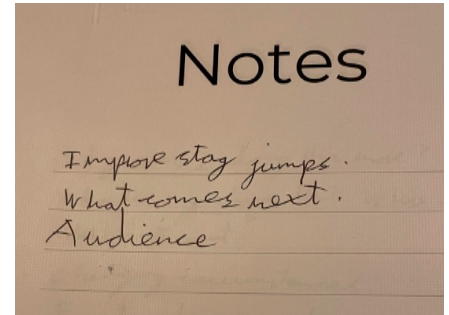 Notes
Improve stag jumps.
What comes next.
Audience